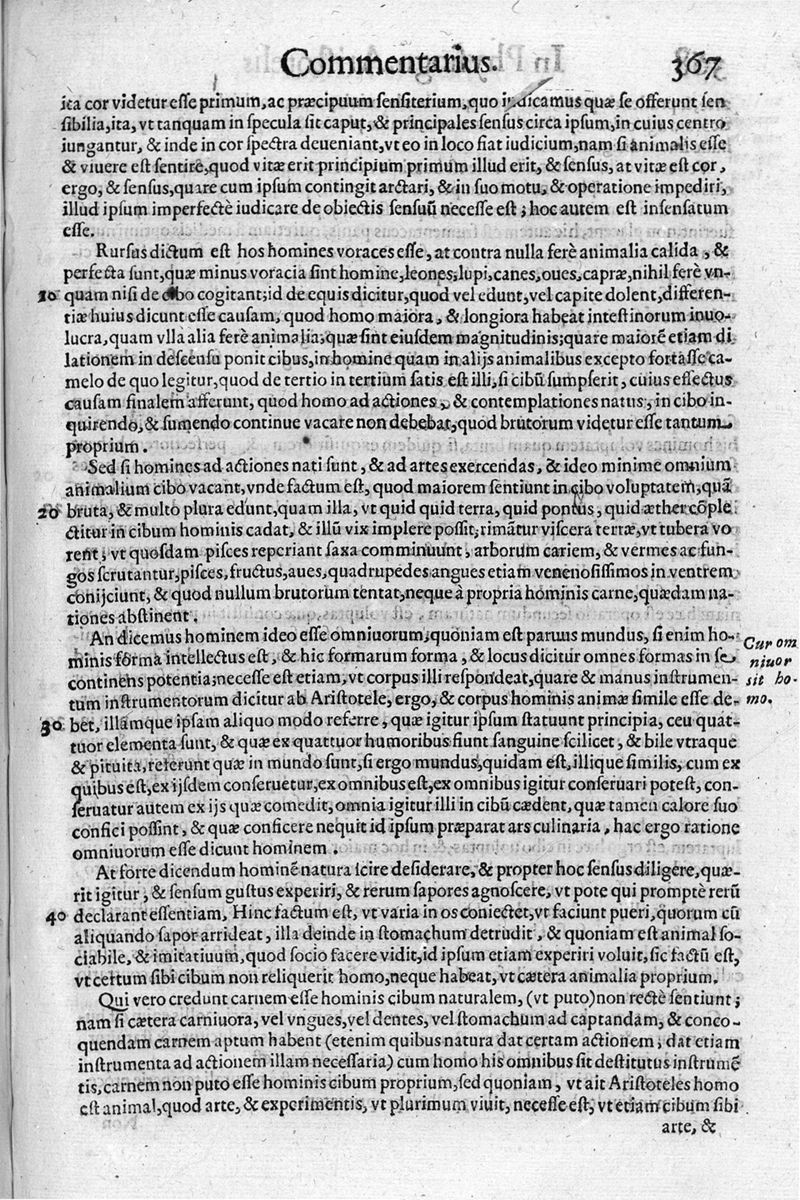 Commentarius. 367
ita cor videtur esse primum, ac præcipuum sensiterium, quo iudicamus quæ se offerunt sen
sibilia, ita, vt tanquam in specula sit caput, & principales sensus circa ipsum, in cuius centro
iungantur, & inde in cor spectra deueniant, vt eo in loco fiat iudicium, nam si animalis esse
& viuere est sentire, quod vitæ erit principium primum illud erit, & sensus, at vitæ est cor,
ergo, & sensus, quare cum ipsum contingit arctari, & in suo motu, & operatione impediri,
illud ipsum imperfectè iudicare de obiectis sensuũ necesse est; hoc autem est insensatum
esse.
Rursus dictum est hos homines voraces esse, at contra nulla ferè animalia calida, &
perfecta sunt, quæ minus voracia sint homine, leones, lupi, canes, oues, capræ, nihil ferè vn-
10 quam nisi de cibo cogitant; id de equis dicitur, quod vel edunt, vel capite dolent, differen-
tiæ huius dicunt esse causam, quod homo maiora, & longiora habeat intestinorum inuo-
lucra, quam vlla alia ferè animalia, quæ sint eiusdem magnitudinis; quare maiorẽ etiam di
lationem in descensu ponit cibus, in homine quam in alijs animalibus excepto fortasse ca-
melo de quo legitur, quod de tertio in tertium satis est illi, si cibũ sumpserit, cuius effectus
causam finalem afferunt, quod homo ad actiones, & contemplationes natus, in cibo in-
quirendo, & sumendo continue vacare non debebat, quod brutorum videtur esse tantum
proprium.
Sed si homines ad actiones nati sunt, & ad artes exercendas, & ideo minime omnium
animalium cibo vacant, vnde factum est, quod maiorem sentiunt in cibo voluptatem, quã
20 bruta, & multo plura edunt, quam illa, vt quid quid terra, quid pontus, quid æther cõple
ctitur in cibum hominis cadat, & illũ vix implere possit, rimãtur viscera terræ, vt tubera vo
rent, vt quosdam pisces reperiant saxa comminuunt, arborum cariem, & vermes ac fun-
gos scrutantur, pisces, fructus, aues, quadrupedes angues etiam venenosissimos in ventrem
conijciunt, & quod nullum brutorum tentat, neque à propria hominis carne, quædam na-
tiones abstinent.
An dicemus hominem ideo esse omniuorum, quoniam est paruus mundus, si enim ho- Cur om
minis forma intellectus est, & hic formarum forma, & locus dicitur omnes formas in se niuor
continens potentia; necesse est etiam, vt corpus illi respondeat, quare & manus instrumen- sit ho-
tum instrumentorum dicitur ab Aristotele, ergo, & corpus hominis animæ simile esse de- mo.
30 bet, illamque ipsam aliquo modo referre, quæ igitur ipsum statuunt principia, ceu quat-
tuor elementa sunt, & quæ ex quattuor humoribus fiunt sanguine scilicet, & bile vtraque
& pituita, referunt quæ in mundo sunt, si ergo mundus quidam est, illique similis, cum ex
quibus est, ex ijsdem conseruetur, ex omnibus est, ex omnibus igitur conseruari potest, con-
seruatur autem ex ijs quæ comedit, omnia igitur illi in cibũ cædent, quæ tamen calore suo
confici possint, & quæ conficere nequit id ipsum præparat ars culinaria, hac ergo ratione
omniuorum esse dicunt hominem.
At forte dicendum hominẽ natura scire desiderare, & propter hoc sensus diligere, quæ-
rit igitur, & sensum gustus experiri, & rerum sapores agnoscere, vt pote qui promptè rerũ
40 declarant essentiam, Hinc factum est, vt varia in os coniectet, vt faciunt pueri, quorum cũ
aliquando sapor arrideat, illa deinde in stomachum detrudit, & quoniam est animal so-
ciabile, & imitatiuum, quod socio facere vidit, id ipsum etiam experiri voluit, sic factũ est,
vt certum sibi cibum non reliquerit homo, neque habeat, vt cætera animalia proprium.
Qui vero credunt carnem esse hominis cibum naturalem, (vt puto) non rectè sentiunt;
nam si cætera carniuora, vel vngues, vel dentes, vel stomachum ad captandam, & conco-
quendam carnem aptum habent (etenim quibus natura dat certam actionem; dat etiam
instrumenta ad actionem illam necessaria) cum homo his omnibus sit destitutus instrumẽ
tis, carnem non puto esse hominis cibum proprium, sed quoniam, vt ait Aristoteles homo
est animal, quod arte, & experimentis, vt plurimum viuit, necesse est, vt etiam cibum sibi
arte, &